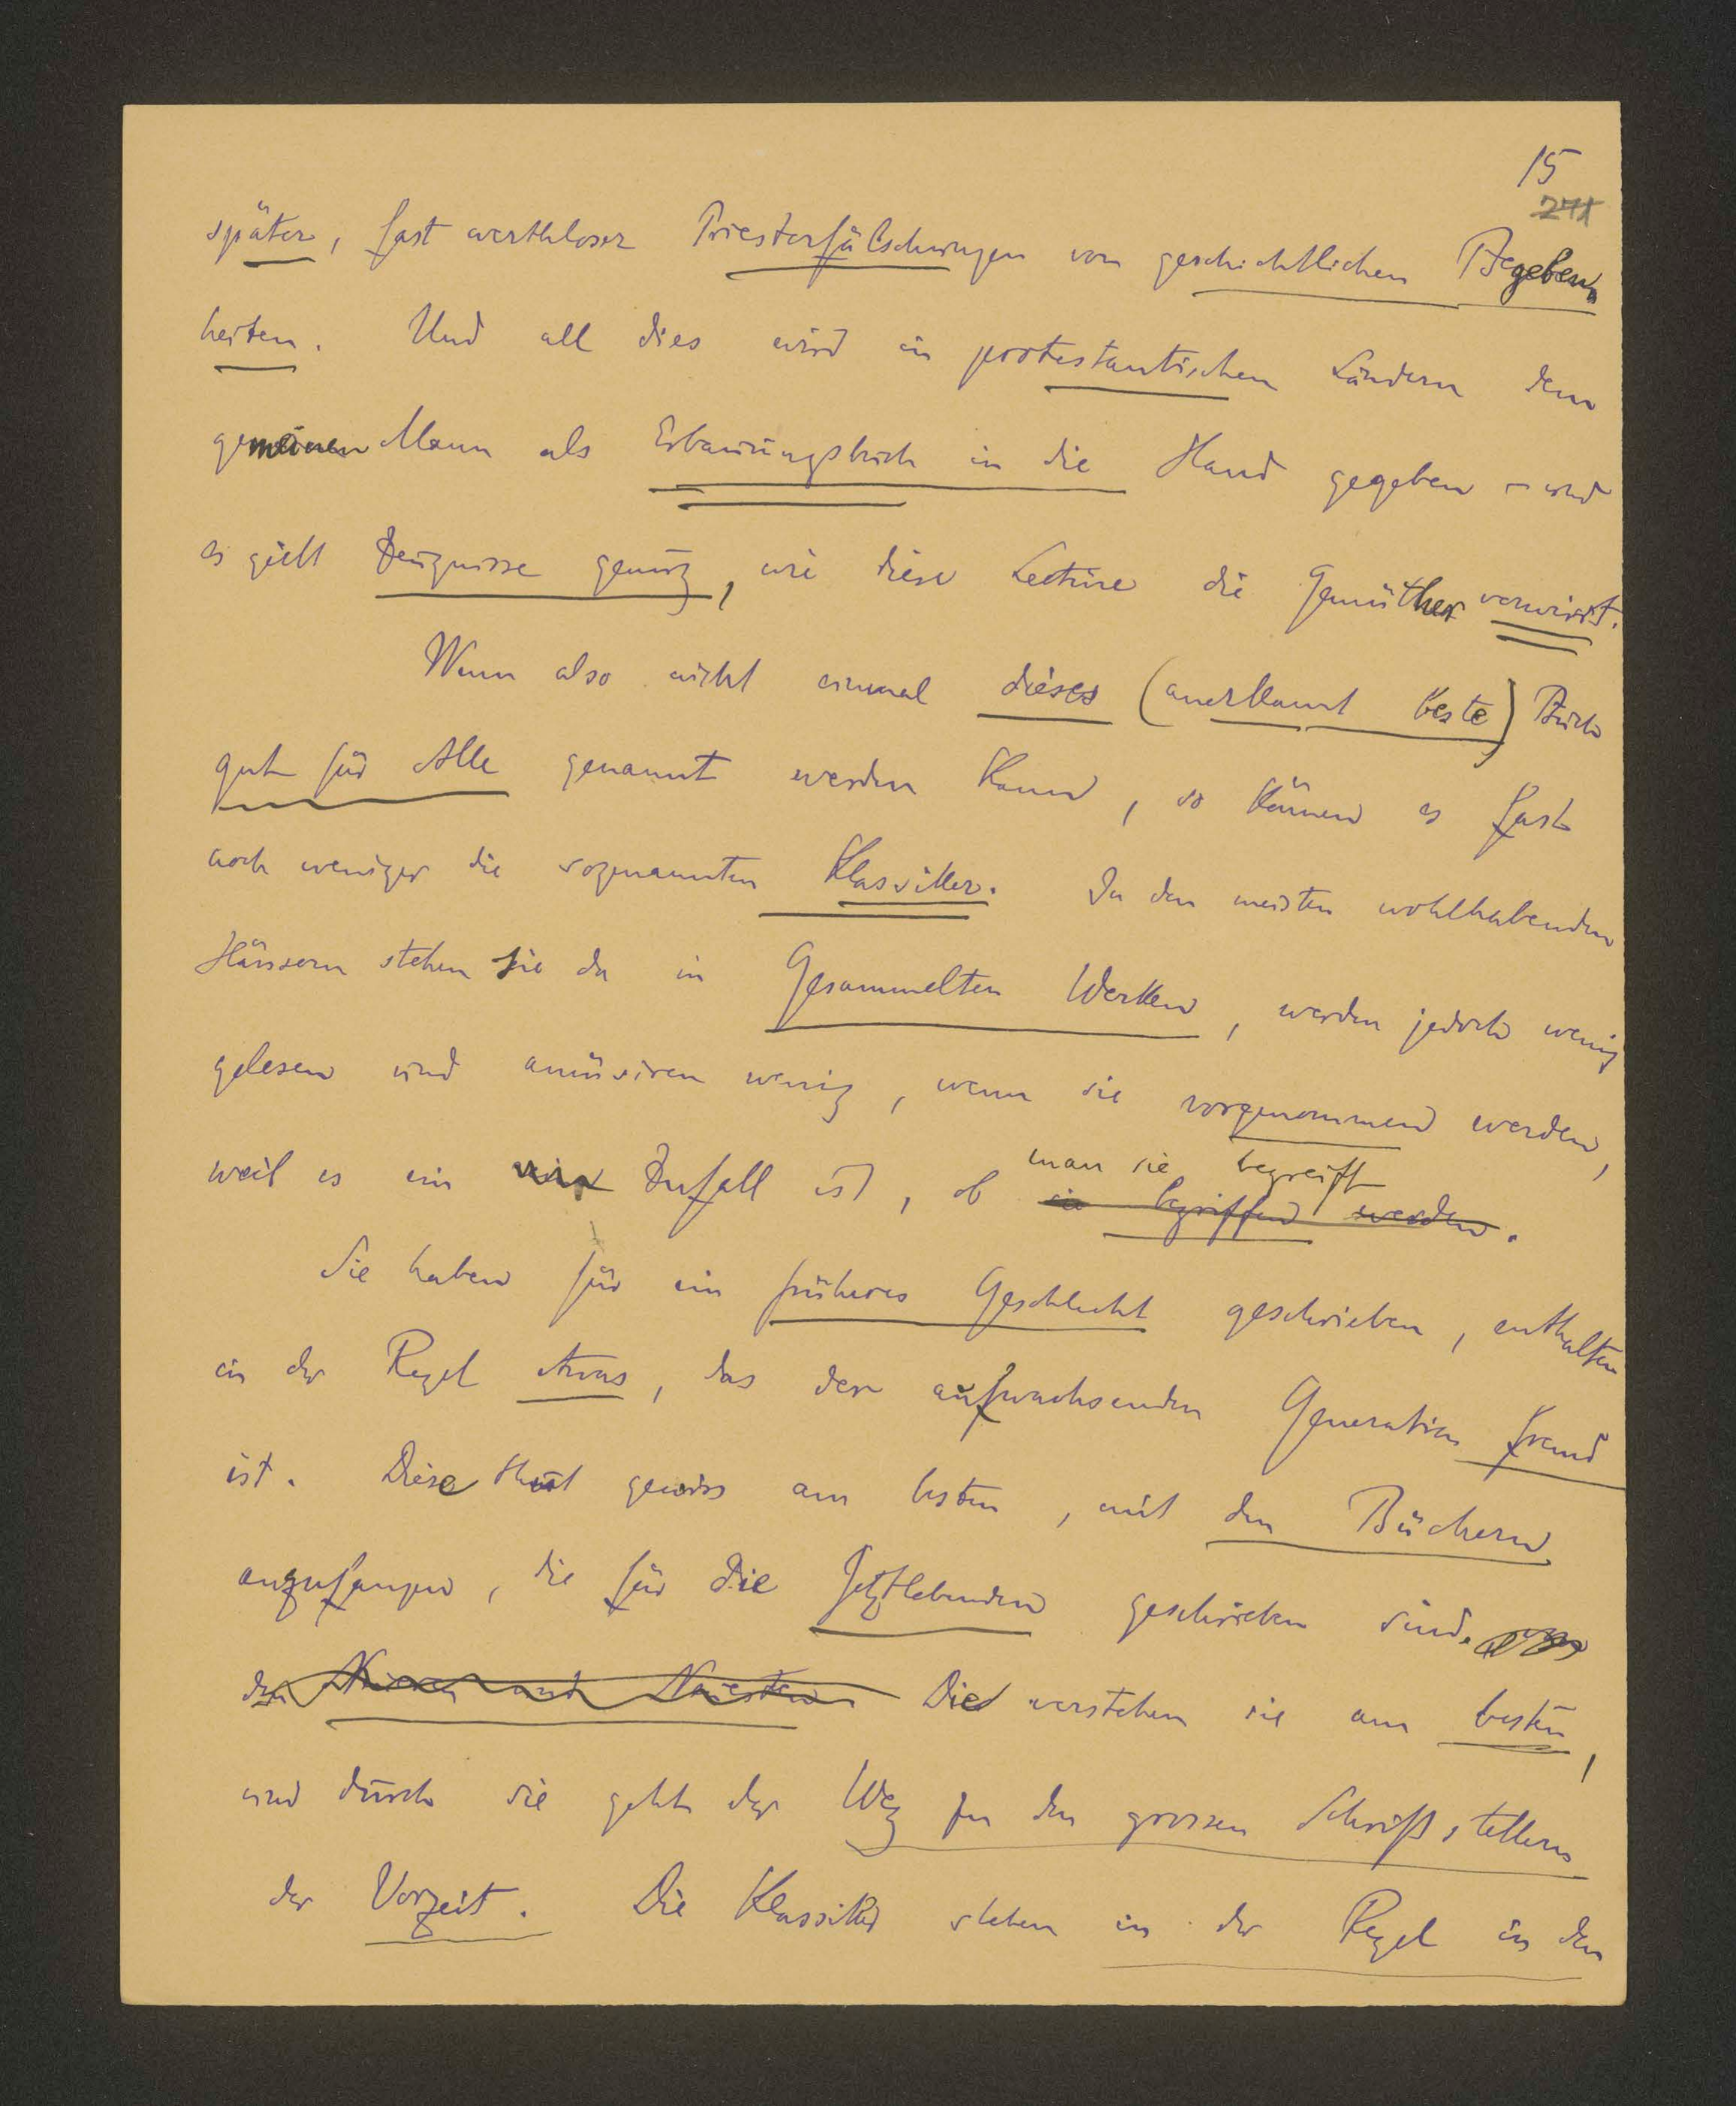 15
271
später, fast werthloser Priesterfälschungen von geschichtlichen Begeben-
heiten. Und all dies wird in protestantischen Ländern dem
gemeinen Mann als Erbauungsbuch in die Hand gegeben – und
es giebt Zeugnisse genug, wie diese Lectüre die Gemüther verwirrt.
Wenn also nicht einmal dieses (anerkannt beste) Buch
gut für Alle genannt werden kann, so können es fast
noch weniger die sogenannten Klassiker. In den meisten wohlhabenden
Häusern stehen sie da in Gesammelten Werken, werden jedoch wenig
gelesen und amüsiren wenig, wenn sie vorgenommen werden,
man sie begreift
weil es ein Zufall ist, ob sie begriffen werden.
Sie haben für ein früheres Geschlecht geschrieben, enthalten
in der Regel etwas, das der aufwachsenden Generation fremd
ist. Diese thut gewiss am besten, mit den Büchern
anzufangen, die für die Jetztlebenden geschrieben sind.
den Neueren und Neuesten. Die verstehen sie am besten,
und durch sie geht der Weg zu den grossen Schriftstellern
der Vorzeit. Die Klassiker stehen in der Regel in den